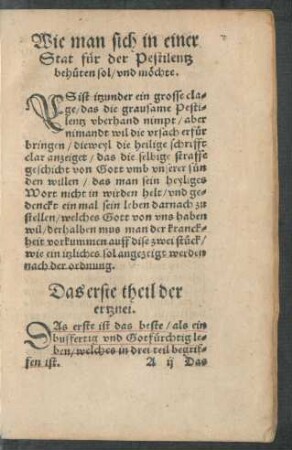 Wie man sich in einer
Stat für der Pestilentz
behüten sol/vnd möchte.
ES ist itzunder ein grosse cla-
ge/das die grausame Pesti-
lentz vberhand nimpt/aber
nimandt wil die vrsach erfür
bringen/dieweyl die heilige schrifft
clar anzeiget/das die selbige straffe
geschicht von Gott vmb vnserer sün
den willen/das man sein heyliges
Wort nicht in wirden helt/vnd ge-
denckt ein mal sein leben darnach zu
stellen/welches Gott von vns haben
wil/derhalben mus man der kranck-
heit vorkummen auff dise zwei stück/
wie ein itzliches sol angezeigt werden
nach der ordnung.
Das erste theil der
ertznei.
DAs erste ist das beste/als ein
busfertig vnd Gotfürchtig le-
ben/welches in drei teil begrif-
fen ist. A ij Das